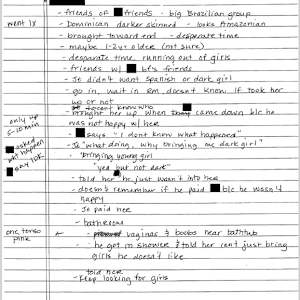 - friends of friends - big Brazilian group
went 1x
- Dominican darker skinned - looks Amazonian
- brought toward end - desperate time
- maybe 1-2 yr older (not sure)
- desperate time. running out of girls.
- friends w/ bf's friends
- Je didn't want Spanish or dark girl
- go in, wait in rm, doesn't know if took her
up or not
brought her up when came down b/c he
was not happy w/ her
only up
5-10 min
says "I don't know what happened"
asked
wht happen
- Je "what doing, why bringing me dark girl"
"bringing young girl"
"yea but not dark"
told her he just wasn't into her
- doesn't remember if he paid b/c he wasn't
happy
- Je paid her
- bathroom
one torso
pink
- vaginas & boobs near bathtub
- he got in shower & told her cant just bring
girls he doesn't like
told her
- Keep looking for girls